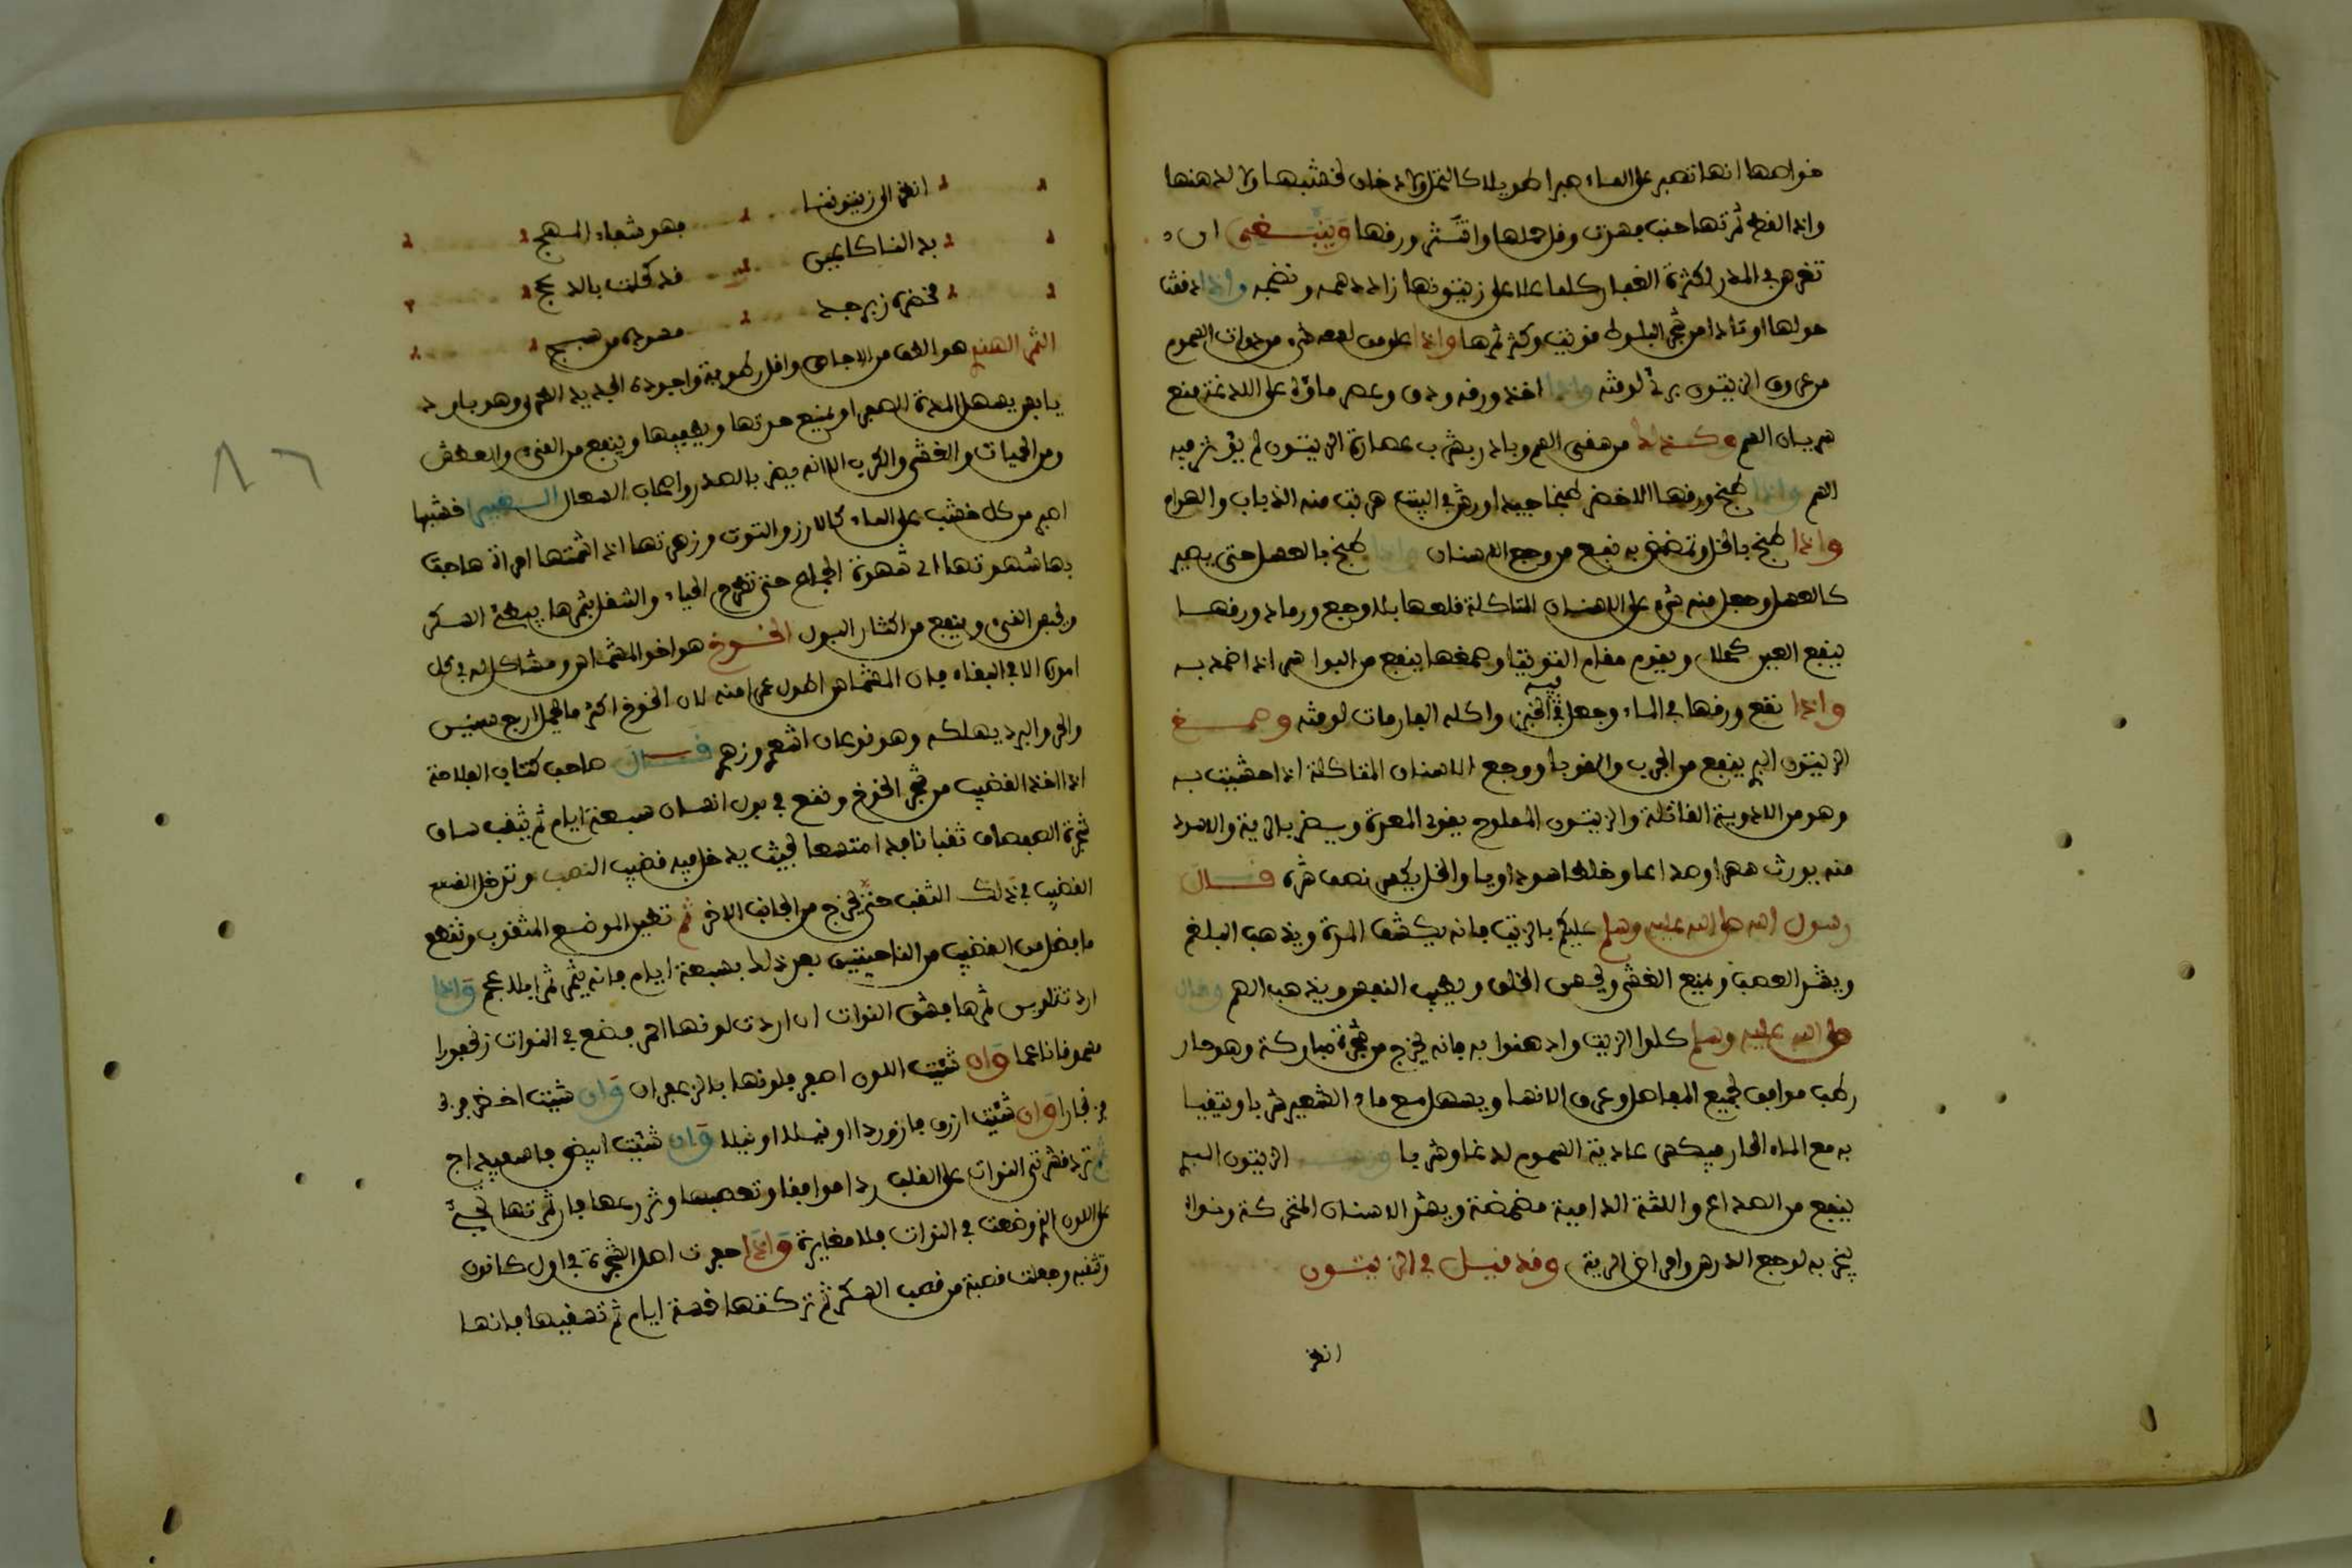 خواصها انها تصبر على الماء صبرا طويلا كالنخل ولا دخان لخشبها ولا لدهنها
واذا لقط ثمرتها جنب فسدت وقل حملها وانتثر ورقها وينبغي ان
تغرس في المدر لكثرة الغبار كلما علا على زيتونها زاد دسمه ونضجه واذا دققت
حولها اوتادا من شجر البلوط قويت وكثر ثمرها واذا علق من لسعه شيء من ذوات السموم
من عروق الزيتون برئ لوقته واذا اخذ ورقه ودق وعصر ماؤه على اللدغة منع
سريان السم وكذلك من سقي السم وبادر بشرب عصارة الزيتون لم يؤثر فيه
السم واذا طبخ ورقها الاخضر طبخا جيدا ورش في البيت هربت منه الذباب والهوام
واذا طبخ بالخل وتمضمض به نفع من وجع الاسنان واذا طبخ بالعسل حتى يصير
كالعسل وجعل منه شيء على الاسنان المتاكلة قلعها بلا وجع ورماد ورقها
ينفع العين كحلا ويقوم مقام التوتيا وصمغها ينفع من البواسر اذا ضمد به
واذا نقع ورقها في الماء وجعل فيه الخبز واكله الفار مات لوقته وصمغ
الزيتون البر ينفع من الجرب والقوبا ووجع الاسنان المتاكلة اذا حشيت به
وهو من الادوية القاتلة والزيتون المملوح يقوي المعدة ويضر بالرية والاسود
منه يورث سهرا وصداعا وخلطا سوداويا والخل يكسر نصف شره قال
رسول الله صلى الله عليه وسلم عليكم بالزيت فانه يكشف المرة ويذهب البلغم
ويشد العصب ويمنع الغشي ويحسن الخلق ويطيب النفس ويذهب الهم وقال
صلى الله عليه وسلم كلوا الزيت وادهنوا به فانه يخرج من شجرة مباركة وهو حار
رطب موافق لجميع المفاصل وعرق الانسا ويسهل مع ماء الشعير شربا ويتقيا
به مع الماء الحار فيكسر عادية السموم لدغا وشربا الزيتون البر
ينفع من الصداع واللثة الدامية مضمضة ويشد الاسنان المتحركة ونواه
يبخر به لوجع الدرس وامراض الرية وقد قيل في الزيتون
انظر
انظر الى زيتوننا فهو شفاء المهج
بدا لنا كاعين قد كحلت بالدعج
مخضره زبرجد مسوده من سبج
الثمر الهندي هو الطف من الاجاص واقل رطوبة واجوده الجديد الطري وهو بارد
يابس يسهل المرة الصفرا ويمنع حدتها ويطفيها وينفع من القيء والعطش
ومن الحميات والغشي والكرب الا انه يضر بالصدر واصحاب السعال خشبها
اصبر من كل خشب على الماء كالارز والتوت وزهرتها اذا شمتها امراة هاجت
بها شهوتها الى شهوة الجماع حتى تطرح الحياء والتنقل بثمرها يبطئ السكر
ويحبس القيء وينفع من اكثار البول الخوخ هو اخو المشماش ومشاكله في كل
امره الا في البقاء فان المشماش اطول عمرا منه لان الخوخ اكثر ما يحمل اربع سنين
والحر والبرد يهلكه وهو نوعان اشعر وزهر قال صاحب كتاب الفلاحة
اذا اخذ القضيب من شجر الخوخ ونقع في بول انسان سبعة ايام ثم يثقب ساق
شجرة الصفصاف ثقبا نافذا متسعا بحيث يدخل فيه قضيب النصب وتدخل القطع
القضيب في ذلك الثقب حتى يخرج من الجانب الاخر ثم تطين الموضع المثقوب وتقطع
ما فضل من القضيب من الناحيتين بعد ذلك بسبعة ايام فانه يثمر ثمرا بلا عجم واذا
اردت تلوين ثمرها فشق النوات ان اردت لونها احمر فضع في النوات زنجفورا
مسحوقا ناعما وان شئت اللون اصفر فلونها بالزعفران وان شئت اخضر
فزنجارا وان شئت ازرق فازوردا او نيلا وان شئت ابيض فاسفيداج
ثم ترد قشرتي النوات على القلب ردا موافقا وتعصبها وتزرعها فان ثمرتها تجيء
على اللون الذي وضعت في النوات بلا مغايرة واذا حفرت اصل الشجرة في اول كانون
وثقبه وجعلت قصبة من قصب السكر ثم تركتها خمسة ايام ثم تسقيها فانها
٨٦